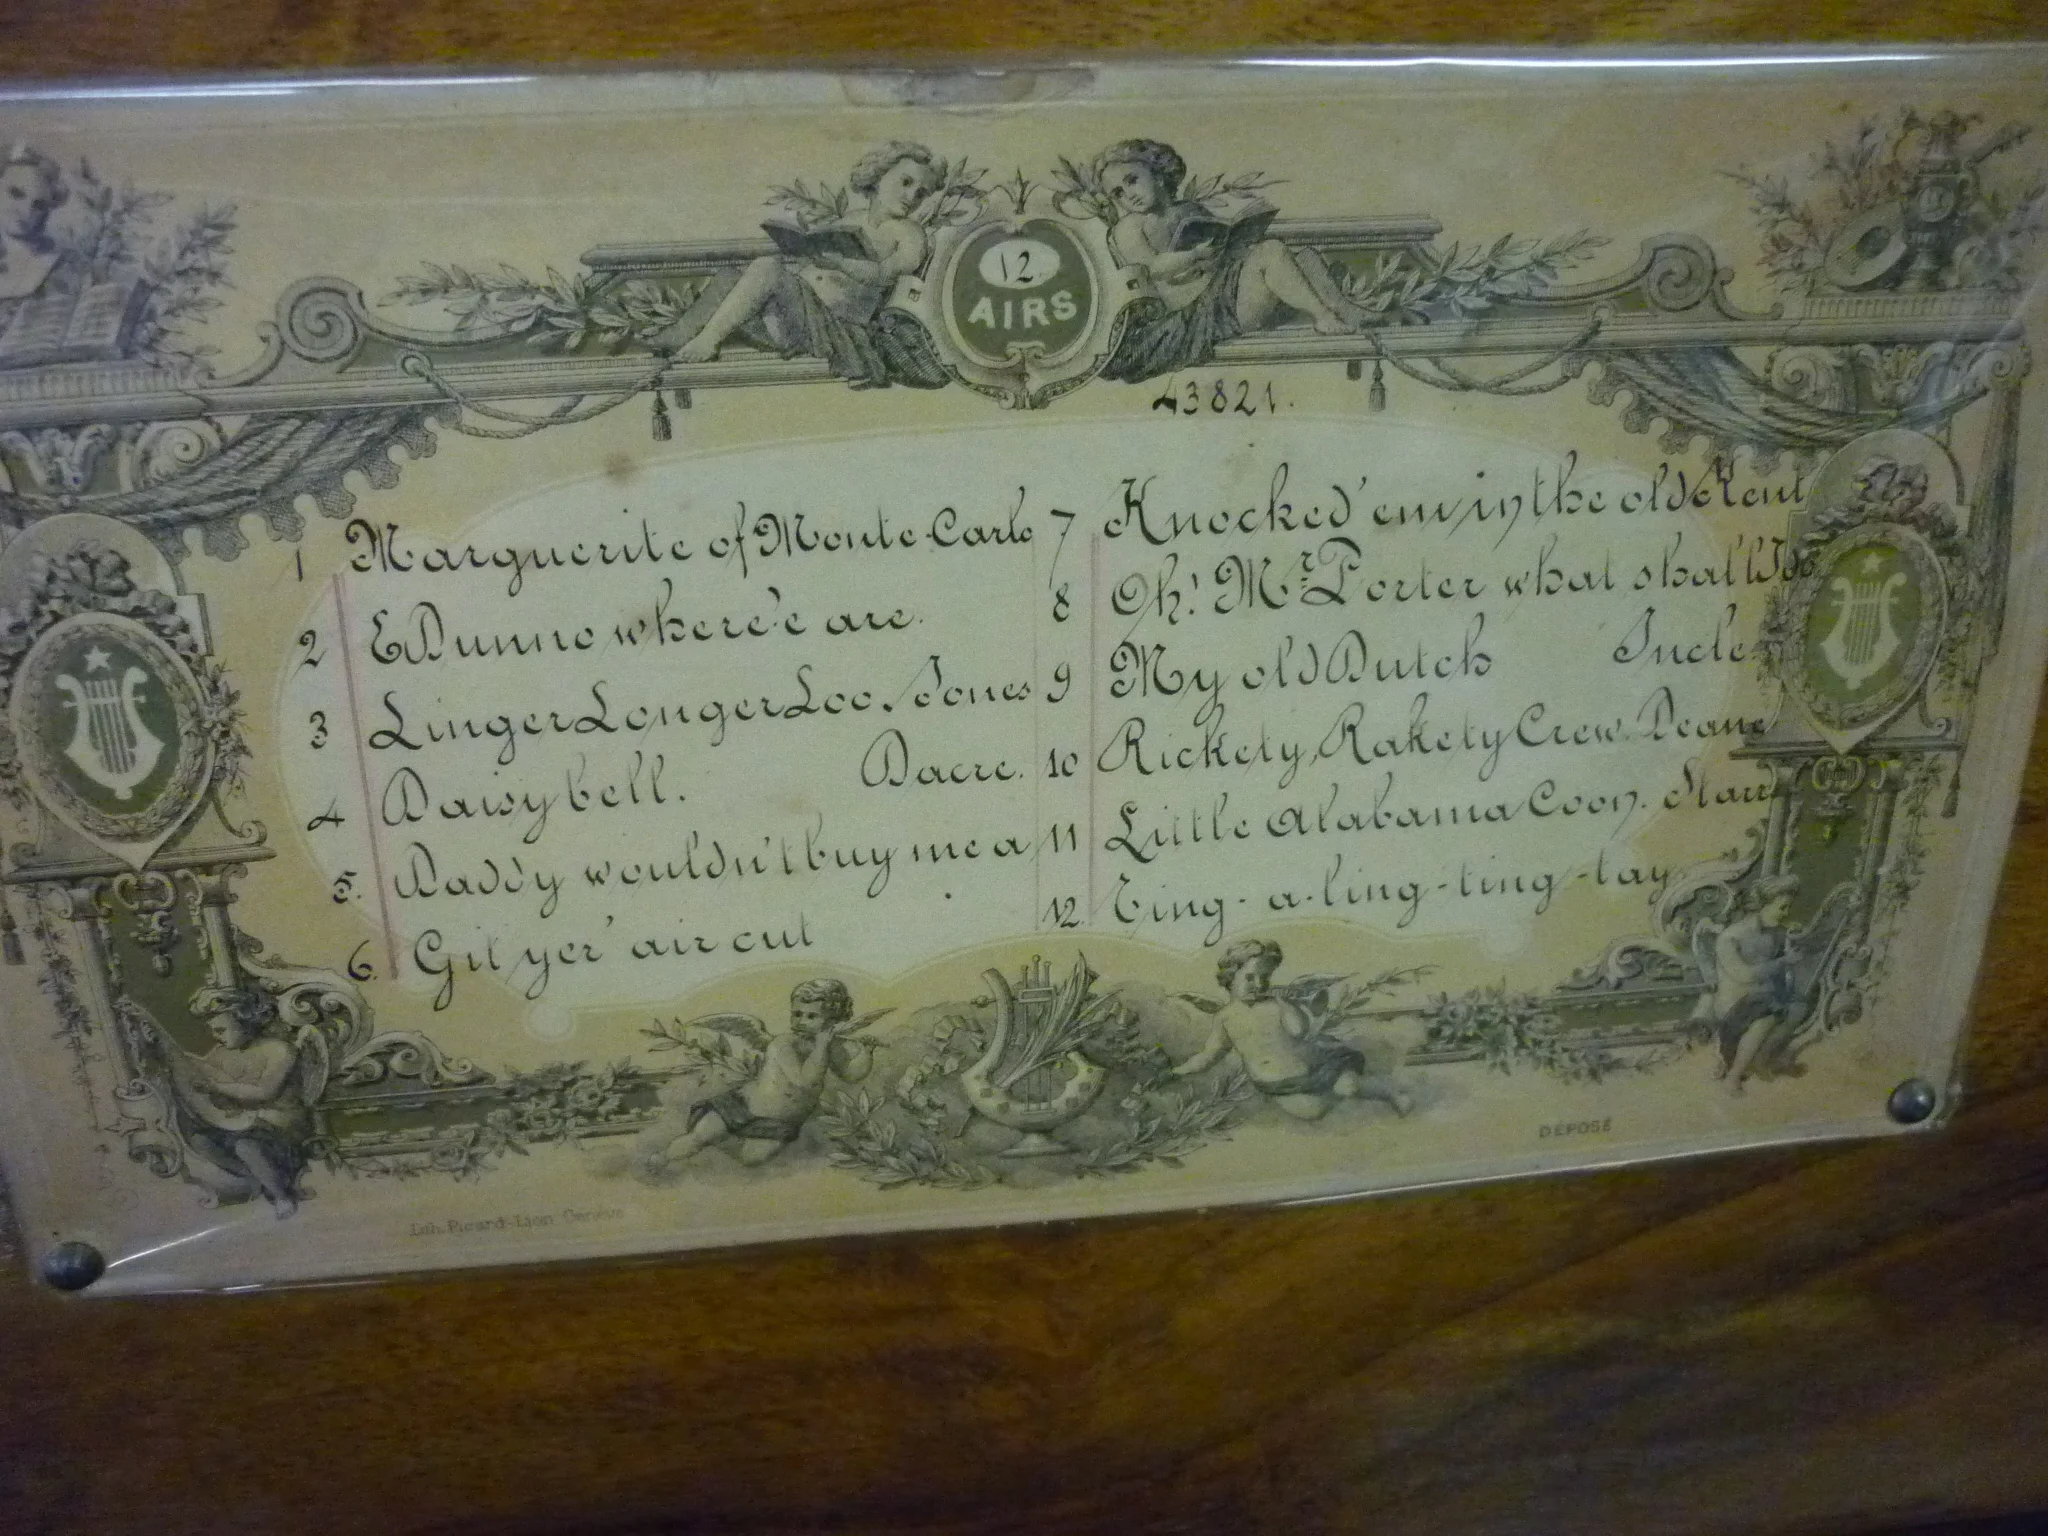 12.
AIRS
43821.
1 Marguerite of Monte-Carlo
2 E Dunno where'e are.
3 Linger Longer Loo. Jones
4 Daisy bell. Dacre.
5. Daddy wouldn't buy me a
6. Git yer' air cut
7 Knocked'em in the old Kent
8 Oh! Mr Porter what shall I do
9 My old Dutch Incle
10 Rickety, Rakety Crew. Deane
11 Little Alabama Coon. Starr
12. Ting-a-ling-ting-tay
Lith. Picard-Lion Genève
DÉPOSÉ